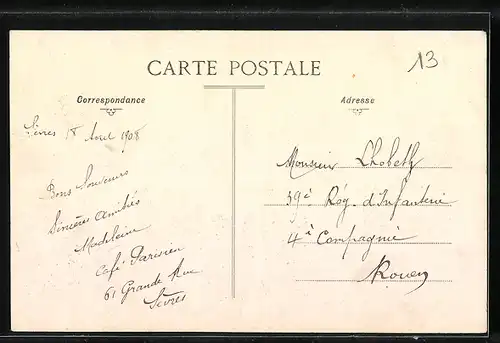 CARTE POSTALE
13
Correspondance
Adresse
Sèvres 18 Avril 1908
Bons Souvenirs
Sincères Amitiés
Madeleine
Café Parisien
61 Grande Rue
Sèvres
Monsieur
39è Rég. d'Infanterie
4è Compagnie
Rouen